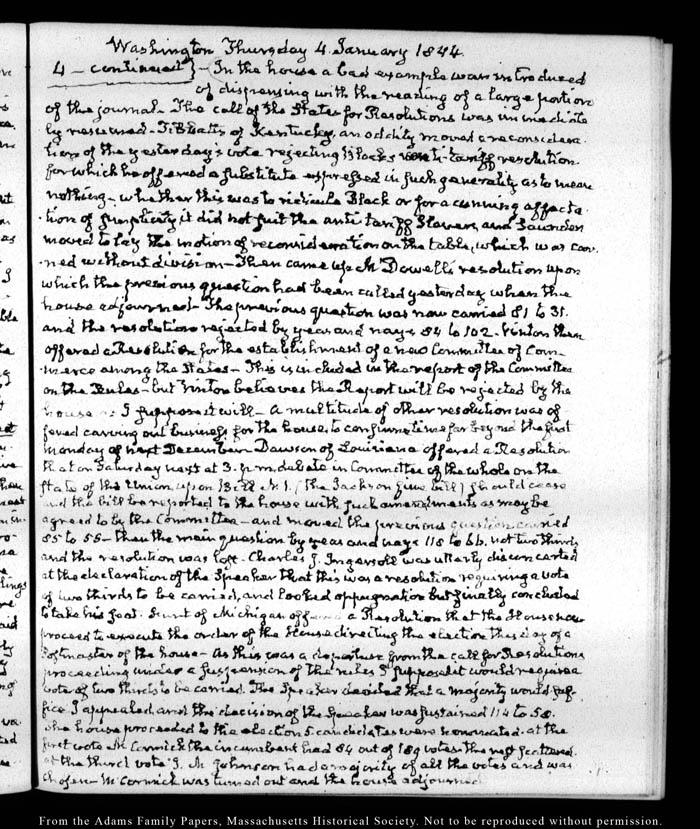 Washington Thursday 4. January 1844.
4 - continued} - In the house a bad example was introduced
of dispensing with the reading of a large portion
of the journal - The call of the States for Resolutions was immediate
ly resumed - Tibbatts of Kentucky, an oddity moved a reconsidera
tion of the yesterday's vote rejecting Black's anti-tariff resolution
for which he offered a substitute expressed in such generality as to mean
nothing - whether this was to ridicule Black or for a cunning affecta
tion of simplicity it did not suit the anti tariff Slavers, and Saunders
moved to lay the motion of reconsideration on the table, which was car
ried without division - Then came up McDowell's resolution upon
which the previous question had been called yesterday when the
house adjourned - The previous question was now carried 81 to 31.
and the resolution rejected by yeas and nays 84 to 102. Vinton then
offered a Resolution for the establishment of a new Committee of Com-
merce among the States - This is included in the report of the Committee
on the Rules - but Vinton believes the Report will be rejected by the
house I suppose it will - A multitude of other resolution was of
fered carving out business for the house, to consume time far beyond the first
monday of next December. Dawson of Louisiana offered a Resolution
that on Saturday next at 3. p.m. debate in Committee of the whole on the
State of the Union upon Bill N. 1. (the Jackson fine bill) should cease
and the bill be reported to the house with such amendments as may be
agreed to by the Committee - and moved the previous question carried
85 to 55 - then the main question by yeas and nays 118 to 66. not two thirds
and the resolution was lost. Charles J. Ingersoll was utterly disconcerted
at the declaration of the Speaker that this was a resolution requiring a vote
of two thirds to be carried, and looked oppugnation but finally concluded
to take his seat. Hunt of Michigan offered a Resolution that the House now
proceed to execute the order of the House directing the election this day of a
Postmaster of the house - As this was a departure from the call for Resolutions
proceeding under a suspension of the rules I supposed it would require a
vote of two thirds to be carried. The Speaker decided that a majority would suf-
fice I appealed and the decision of the Speaker was sustained 114 to 58.
The house proceeded to the election 5 candidates were nominated. at the
first vote McCormick the incumbent had 84 out of 189 votes - the rest scattered
at the third vote J. M. Johnson had a majority of all the votes and was
chosen - McCormick was turned out and the house adjourned
From the Adams Family Papers, Massachusetts Historical Society. Not to be reproduced without permission.